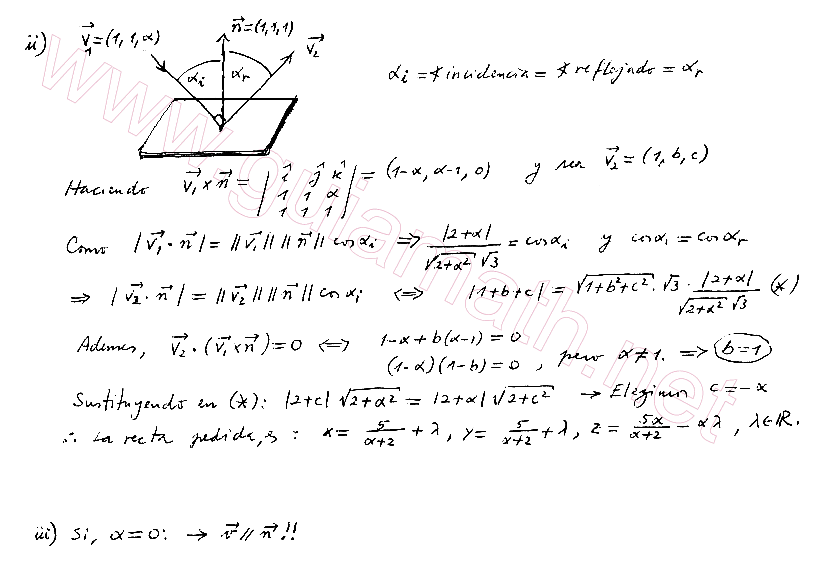 ii) v⃗₁=(1,1,α) n⃗=(1,1,1) v⃗₂
αi αr
αi = ∢ incidencia = ∢ reflejado = αr
Haciendo v⃗₁×n⃗ = | î ĵ k̂ ; 1 1 α ; 1 1 1 | = (1-α, α-1, 0) y sea v⃗₂=(1,b,c)
Como |v⃗₁·n⃗| = ||v⃗₁|| ||n⃗|| cosαi ⇒ |2+α| / (√(2+α²) √3) = cosαi y cosαi = cosαr
⇒ |v⃗₂·n⃗| = ||v⃗₂|| ||n⃗|| cosαi ⇔ |1+b+c| = √(1+b²+c²) · √3 · |2+α| / (√(2+α²) √3) (*)
Ademas, v⃗₂·(v⃗₁×n⃗)=0 ⇔ 1-α+b(α-1)=0
(1-α)(1-b)=0, pero α≠1. ⇒ b=1
Sustituyendo en (*): |2+c| √(2+α²) = |2+α| √(2+c²) → Elegimos c=-α
∴ La recta pedida, es: x= 5/(α+2) + λ, y= 5/(α+2) + λ, z= 5α/(α+2) - αλ, λ∈ℝ.
iii) Si, α=0: → v⃗ // n⃗ !!
www.guiamath.net